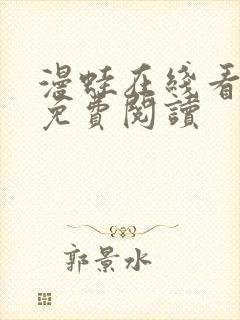 漫蛙在綫看
免費閱讀
郭景水